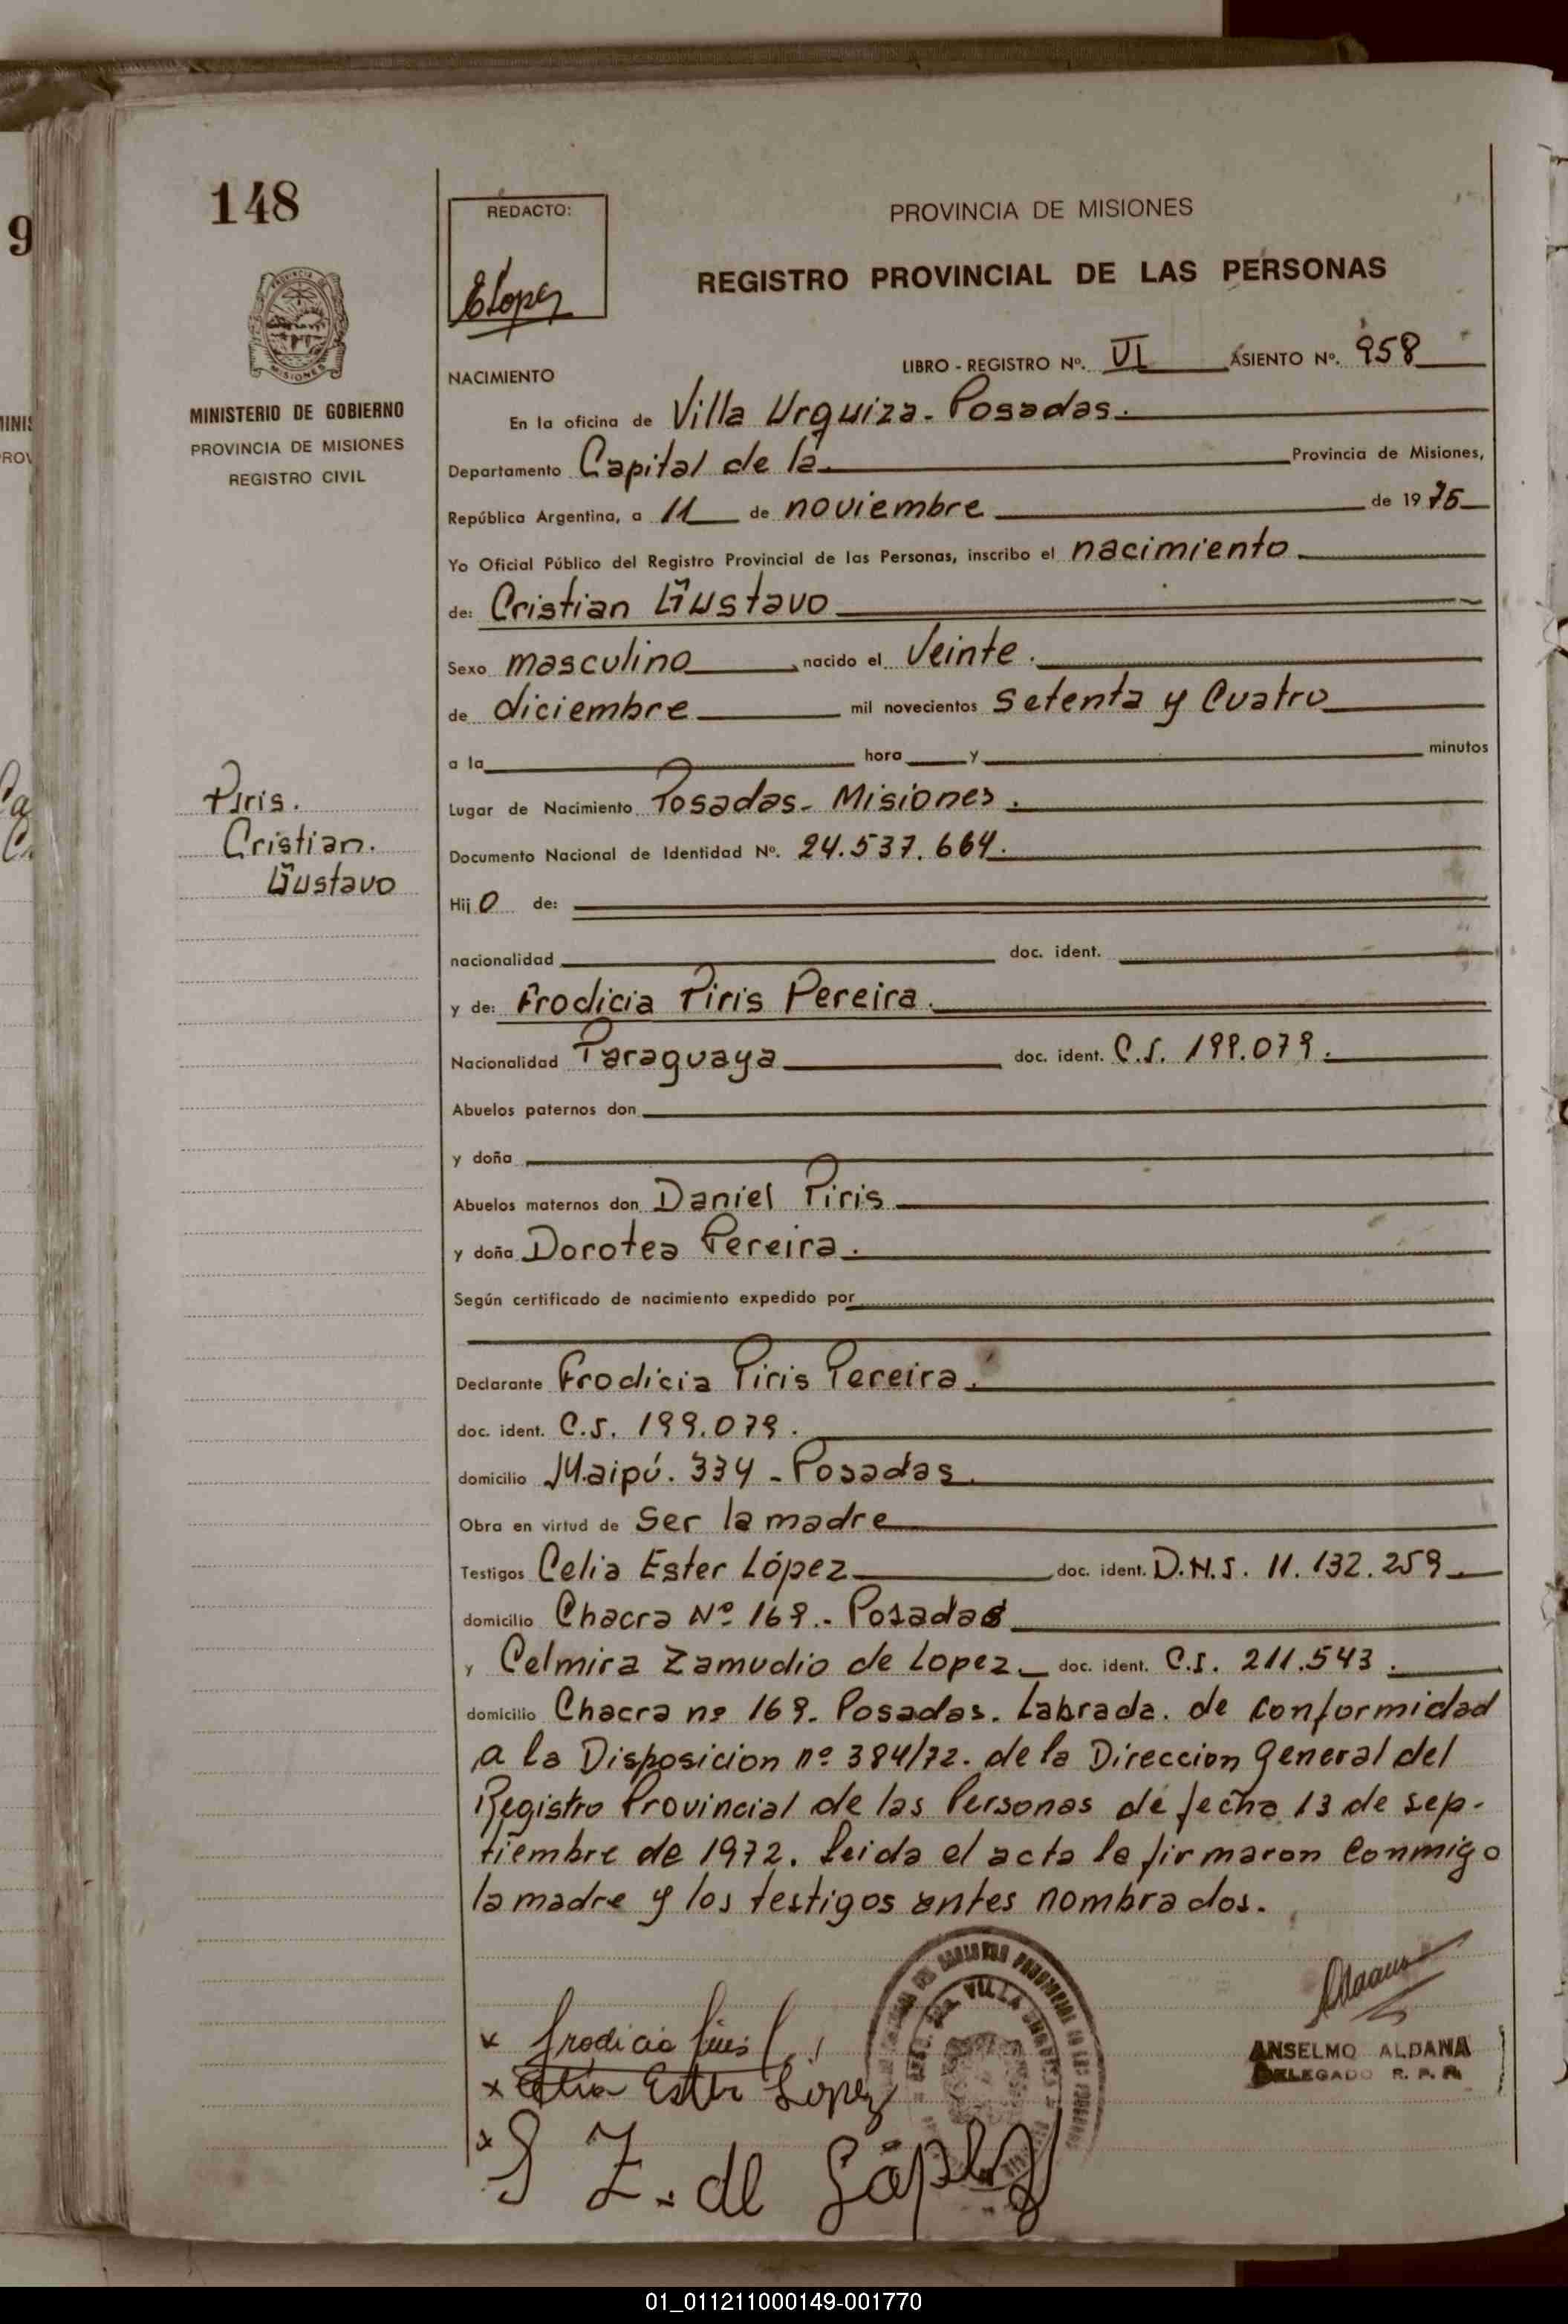 148
REDACTO:
ELopez
PROVINCIA DE MISIONES
REGISTRO PROVINCIAL DE LAS PERSONAS
MISIONES
MINISTERIO DE GOBIERNO
PROVINCIA DE MISIONES
REGISTRO CIVIL
LIBRO - REGISTRO Nº. VI ASIENTO Nº. 958
NACIMIENTO
En la oficina de Villa Urquiza - Posadas.
Departamento Capital de la Provincia de Misiones,
República Argentina, a 11 de noviembre de 1975
Yo Oficial Público del Registro Provincial de las Personas, inscribo el nacimiento
de: Cristian Gustavo
Sexo masculino nacido el Veinte.
de diciembre mil novecientos setenta y Cuatro
a la hora y minutos
Piris.
Cristian.
Gustavo
Lugar de Nacimiento Posadas - Misiones.
Documento Nacional de Identidad Nº. 24.537.664.
Hijo de:
nacionalidad doc. ident.
y de: Frodicia Piris Pereira.
Nacionalidad Paraguaya doc. ident. C.I. 199.079.
Abuelos paternos don
y doña
Abuelos maternos don Daniel Piris
y doña Dorotea Pereira.
Según certificado de nacimiento expedido por
Declarante Frodicia Piris Pereira.
doc. ident. C.I. 199.079.
domicilio Maipú. 334 - Posadas.
Obra en virtud de Ser la madre
Testigos Celia Ester López doc. ident. D.N.I. 11.132.259
domicilio Chacra Nº 169.- Posadas
y Celmira Zamudio de Lopez doc. ident. C.I. 211.543.
domicilio Chacra nº 169. Posadas. Labrada. de conformidad
a la Disposicion nº 384/72. de la Direccion General del
Registro Provincial de las Personas de fecha 13 de sep-
tiembre de 1972. Leida el acta la firmaron Conmigo
la madre y los testigos antes nombrados.
x Frodicia Piris
x Celia Ester López
x Z. de López
VILLA URQUIZA
ANSELMO ALDANA
DELEGADO R. P. P.
01_011211000149-001770